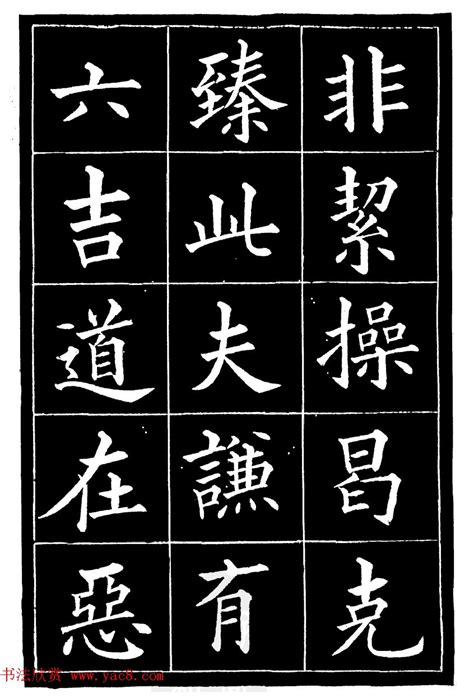 非絜操曷克
臻此夫謙有
六吉道在惡
书法欣赏 www.yac8.com